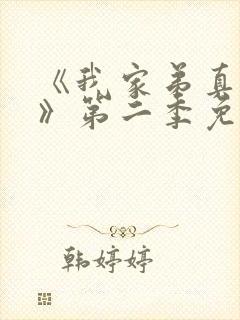 《我家弟真
》第二季免
韩婷婷